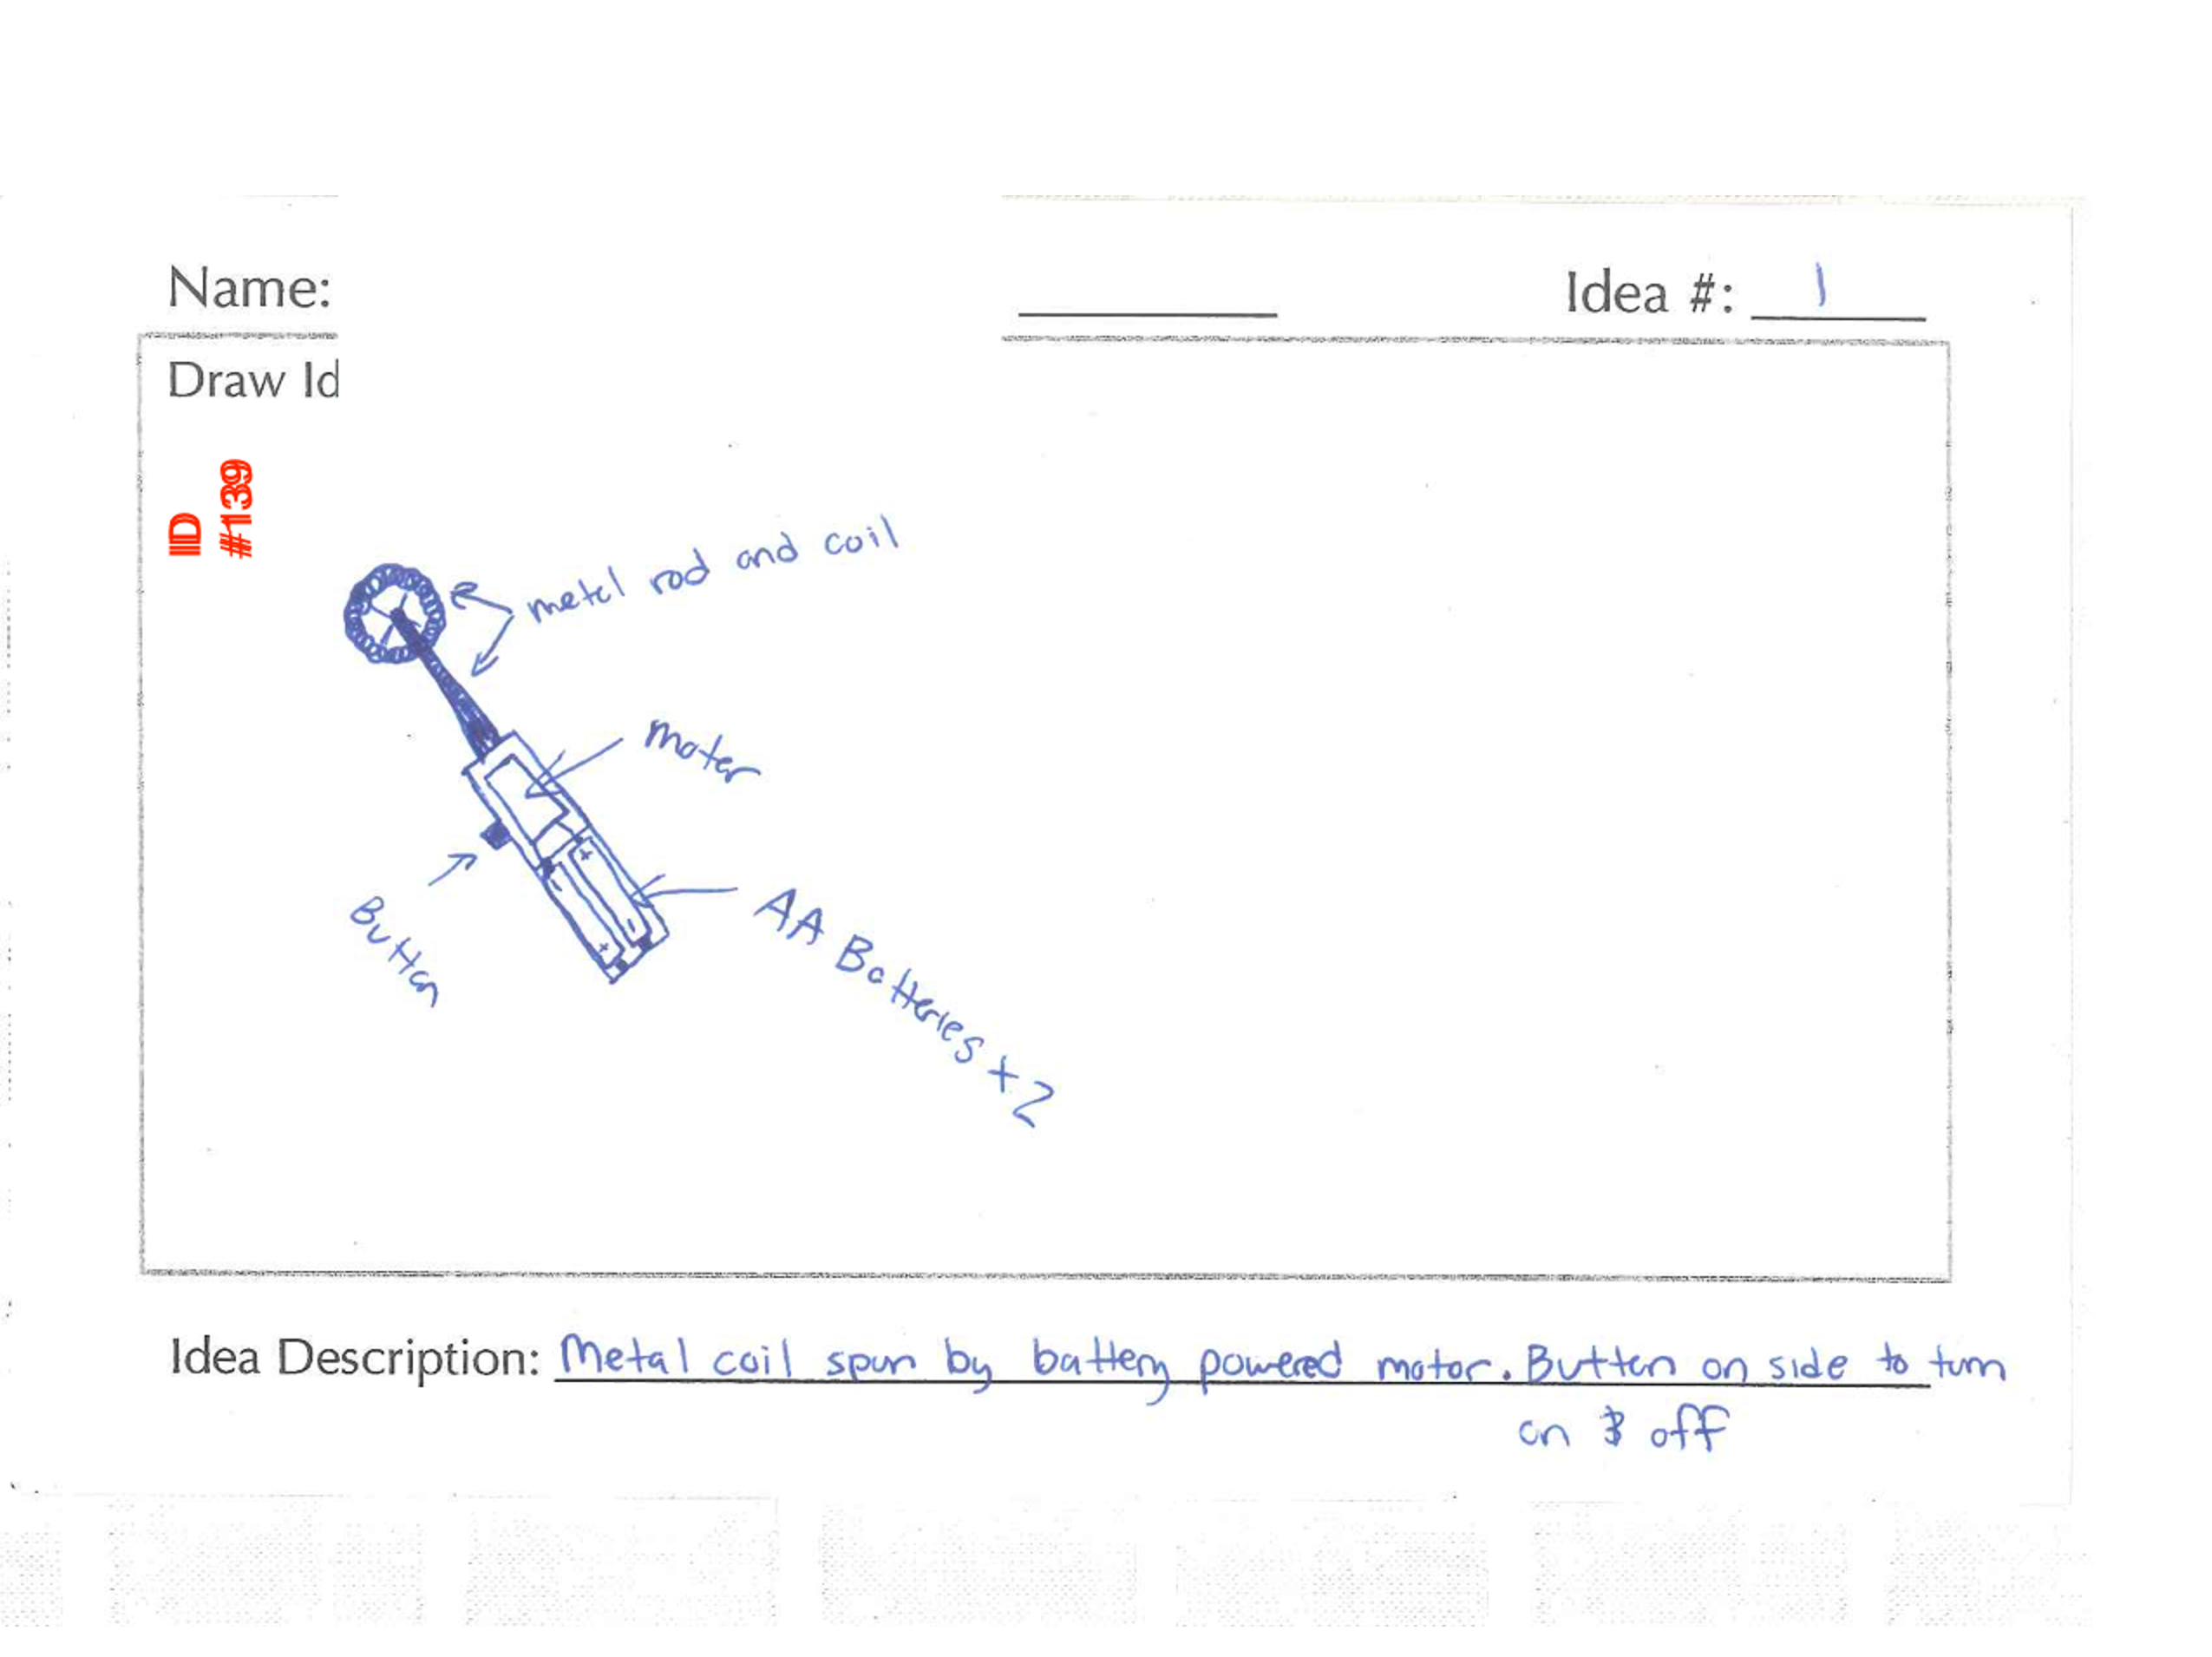 Name:
Idea #: 1
Draw Id
IID
#139
metal rod and coil
moter
Button
AA Batteries x2
Idea Description: Metal coil spun by battery powered motor. Button on side to turn
on & off